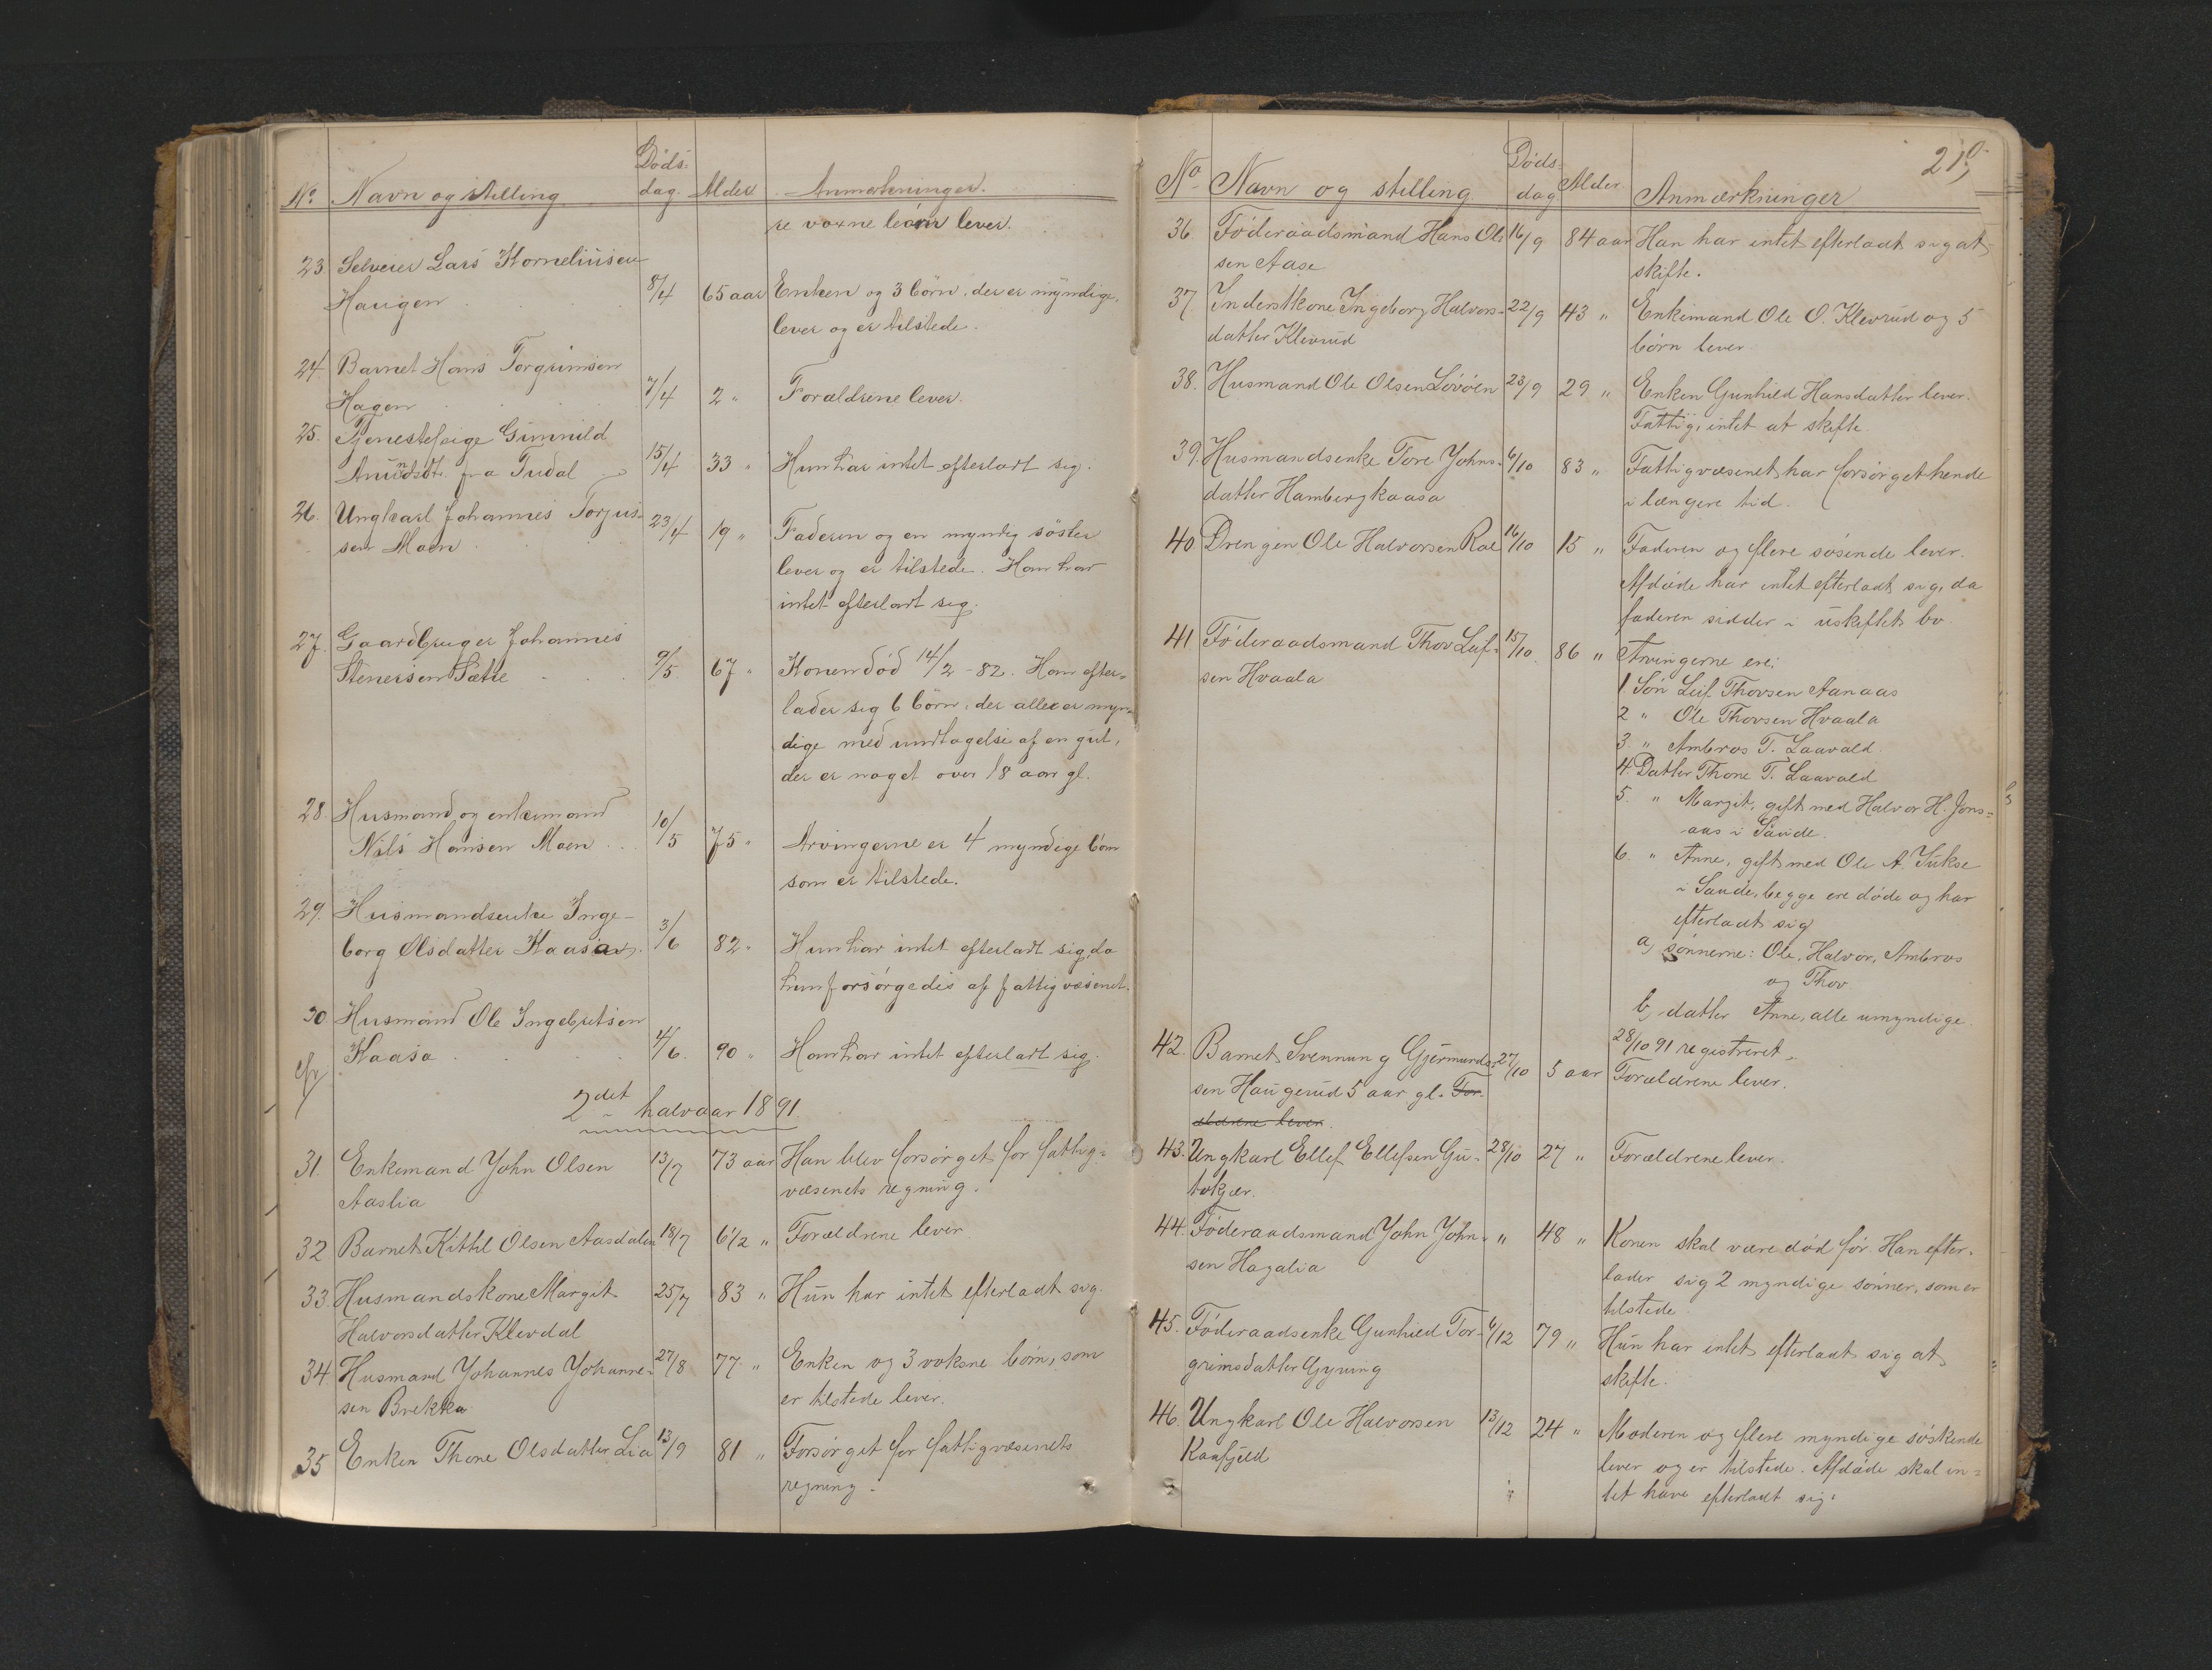 No Navn og stilling Döds- dag. Alder Anmerkninger.
re voxne börn lever.
23. Selveier Lars Korneliusen
Haugen 8/4 65 aar Enken og 3 börn, der er myndige,
lever og er tilstede.
24. Barnet Hans Torgrimsen
Hagen 7/4 2 " Forældrene lever.
25. Tjenestepige Gunnild
Anundsdt. fra Tudal 15/4 33 " Hun har intet efterladt sig.
26. Ungkarl Johannes Torjus-
sen Moen 23/4 19 " Faderen og en myndig söster
lever og er tilstede. Han har
intet efterladt sig.
27. Gaardbruger Johannes
Stenersen Sætre 9/5. 67 " Konen död 14/2-82. Han efter-
lader sig 6 börn, der alle er myn-
dige med undtagelse af en gut,
der er noget over 18 aar gl.
28. Husmand og enkemand
Nils Hansen Moen 10/5 75 " Arvingerne er 4 myndige börn
som er tilstede.
29. Husmandsenke Inge-
borg Olsdatter Kaasa 3/6 82 " Hun har intet efterladt sig, da
hun forsörgedes af fattigvæsenet.
30. Husmand Ole Ingebretsen
Kaasa 4/6. 90 " Han har intet efterladt sig.
2det halvaar 1891.
31. Enkemand John Olsen 13/7 73 aar Han blev forsörget for fattig-
Aaslia væsenets regning.
32 Barnet Kittil Olsen Aasdalen 18/7 6 1/2 " Forældrene lever
33. Husmandskone Margit 25/7 83 " Hun har intet efterladt sig.
Halvorsdatter Klevdal
34. Husmand Johannes Johanne- 27/8 77. " Enken og 3 voksne börn, som
sen Brekka er tilstede lever.
35 Enken Thone Olsdatter Lia 13/9 81 " Forsörget for fattigvæsenets
regning.
219
No Navn og stilling Döds- dag Alder. Anmærkninger
36. Föderaadsmand Hans Ol- 16/9 84 aar Han har intet efterladt sig at
sen Aase skifte.
37. Inderstkone Ingeborg Halvors- 22/9 43 " Enkemand Ole O. Klevrud og 5
datter Klevrud börn lever
38. Husmand Ole Olsen Lövöen 23/9 29 " Enken Gunhild Hansdatter lever.
Fattig, intet at skifte.
39. Husmandsenke Tore Johns- 6/10 83 " Fattigvæsenet har forsörget hende
datter Hambergkaasa i længere tid.
40. Drengen Ole Halvorsen Roe 16/10 15 " Faderen og flere sösende lever.
Afdöde har intet efterladt sig, da
faderen sidder i uskiftet bo.
41. Föderaadsmand Thov Leif- 15/10. 86 " Arvingerne ere:
sen Hvaala
1. Sön Leif Thovsen Aanaas
2 " Ole Thovsen Hvaala
3. " Ambros T. Laavald.
4. Datter Thone T. Laavald
5. " Margit, gift med Halvor H. Jons-
aas i Saude.
6. " Anne, gift med Ole A. Jukse
i Saude, begge ere döde og har
efterladt sig
a, sönnerne: Ole, Halvor, Ambros
og Thov.
b, datter Anne, alle umyndige
28/10 91 registreret.
42. Barnet Svennung Gjermund- 27/10 5 aar Forældrene lever.
sen Haugerud 5 aar gl. For-
ældrene lever.
43. Ungkarl Ellef Ellefsen Gu- 28/10 27 " Forældrene lever.
tokjær.
44. Föderaadsmand John John- " 48 " Konen skal være död för. Han efter-
sen Hagalia lader sig 2 myndige sönner, som er
tilstede.
45. Föderaadsenke Gunhild Tor- 6/12 79 " Hun har intet efterladt sig at
grimsdatter Gryning skifte.
46. Ungkarl Ole Halvorsen 13/12 24 " Moderen og flere myndige söskende
Kaafjeld lever og er tilstede. Afdöde skal in-
tet have efterladt sig.